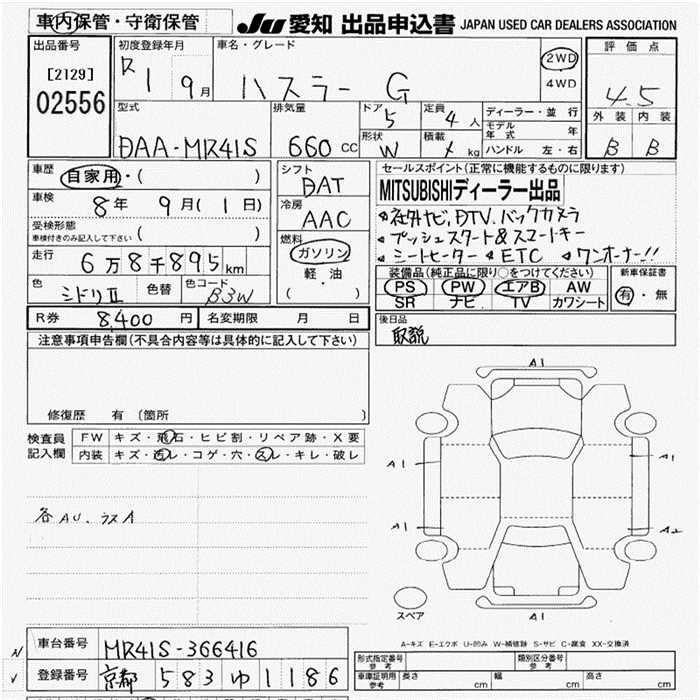 車内保管・守衛保管
JU 愛知 出品申込書 JAPAN USED CAR DEALERS ASSOCIATION
出品番号
[2129]
02556
初度登録年月
R 1 9月
車名・グレード
ハスラー G
2WD
4WD
評価点
4.5
外装 内装
B B
型式
DAA-MR41S
排気量
660 CC
ドア
5
形状
W
定員
4人
積載
kg
ディーラー・並行
モデル年式 年
ハンドル 左・右
車歴 自家用・( )
車検 8年 9月(1日)
受検形態
車検付きのみ記入して下さい ( )
走行 6万8千895km
色 ミドリII 色替 色コード B3W
シフト
DAT
冷房
AAC
燃料
ガソリン
軽・油
( )
セールスポイント(正常に機能するものに限ります)
MITSUBISHIディーラー出品
社外ナビ、DTV、バックカメラ
プッシュスタート&スマートキー
シートヒーター ETC ワンオーナー!!
装備品(純正品に限り○をつけてください)
PS PW エアB AW
SR ナビ TV カワシート
新車保証書
有・無
R券 8,400円 名変期限 月 日
後日品
取説
注意事項申告欄(不具合内容等は具体的に記入して下さい)
修復歴 有 (箇所 )
検査員
記入欄
FW キズ・飛石・ヒビ割・リペア跡・X要
内装 キズ・汚レ・コゲ・穴・スレ・キレ・破レ
各AU、ラスA
A1
A1
A1
A1
A2
A1
スペア
A-キズ E-エクボ U-凹み W-補修跡 S-サビ C-腐食 XX-交換済
N 車台番号 MR41S-366416
V 登録番号 京都 583 ゆ 1186
形式指定番号
参考
類別区分番号
参考
車庫証明用
参考
長さ cm 幅 cm 高さ cm